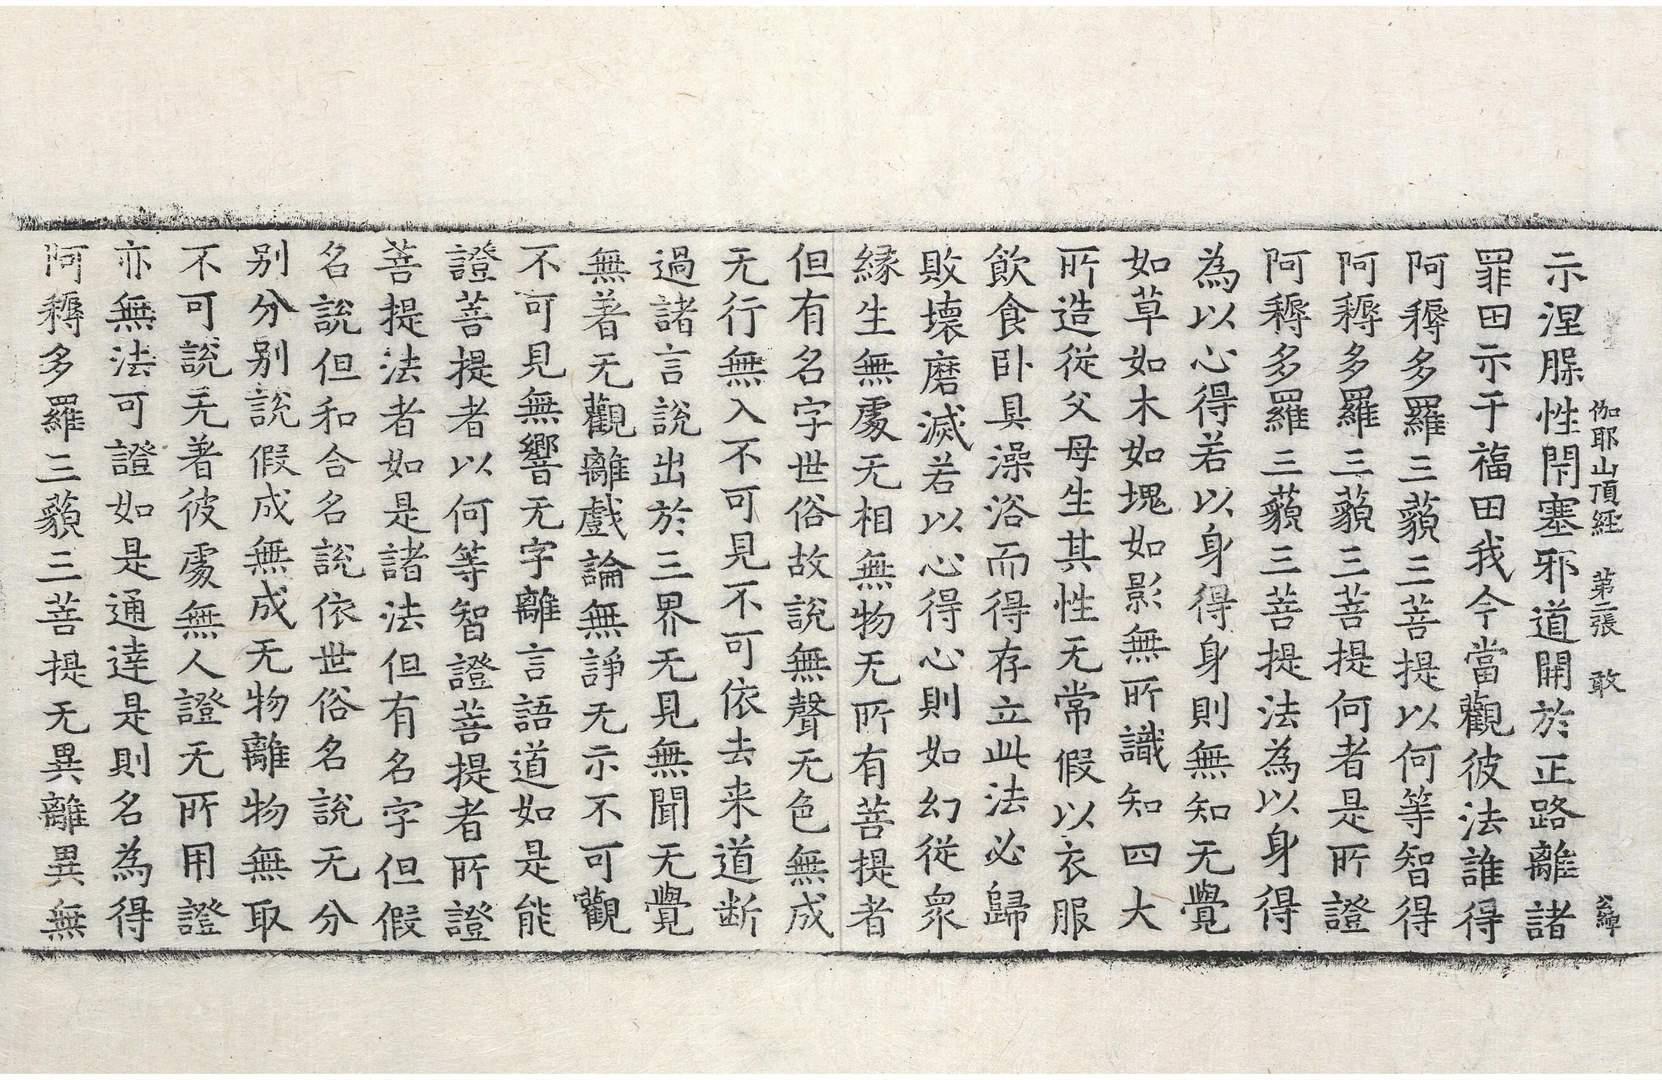 伽耶山頂経 第二張 敢
示涅性閇塞邪道開於正路離諸
罪田示于福田我今當觀彼法誰得
阿耨多羅三藐三菩提以何等智得
阿耨多羅三藐三菩提何者是所證
阿耨多羅三藐三菩提法為以身得
為以心得若以身得身則無知无覺
如草如木如塊如影無所識知四大
所造從父母生其性无常假以衣服
飲食卧具澡浴而得存立此法必歸
敗壞磨滅若以心得心則如幻從衆
縁生無處无相無物无所有菩提者
但有名字世俗故說無聲无色無成
无行無入不可見不可依去来道断
過諸言說出於三界无見無聞无覺
無著无觀離戲論無諍无示不可觀
不可見無響无字離言語道如是能
證菩提者以何等智證菩提者所證
菩提法者如是諸法但有名字但假
名說但和合名說依世俗名說无分
别分别說假成無成无物離物無取
不可說无著彼處無人證无所用證
亦無法可證如是通達是則名為得
阿耨多羅三藐三菩提无異離異無